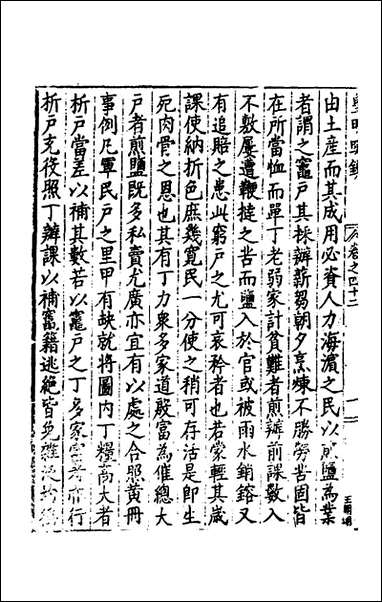 由土産而其成用必資人力海濵之民以煎鹽為業
者謂之竈戸其採辦薪蒭朝夕烹煉不勝勞苦固皆
在所當恤而單丁老弱家計貧難者煎辦前課數入
不敷屢遭鞭撻之苦而鹽入於官或被雨水銷鎔又
有追賠之患此窮戸之尤可哀矜者也若蒙輕其歲
課使納折色庶幾寬民一分使之稍可存活是即生
死肉骨之恩也其有丁力衆多家道殷富為催總大
戸者煎鹽既多私賣尤廣亦宜有以處之合照黄冊
事例凡軍民戸之里甲有缺就將圖内丁糧高大者
折戸當差以補其數若以竈戸之丁多家富者亦行
折戸充役照丁辦課以補竈籍逃絶皆免雜泛
卷之四十二